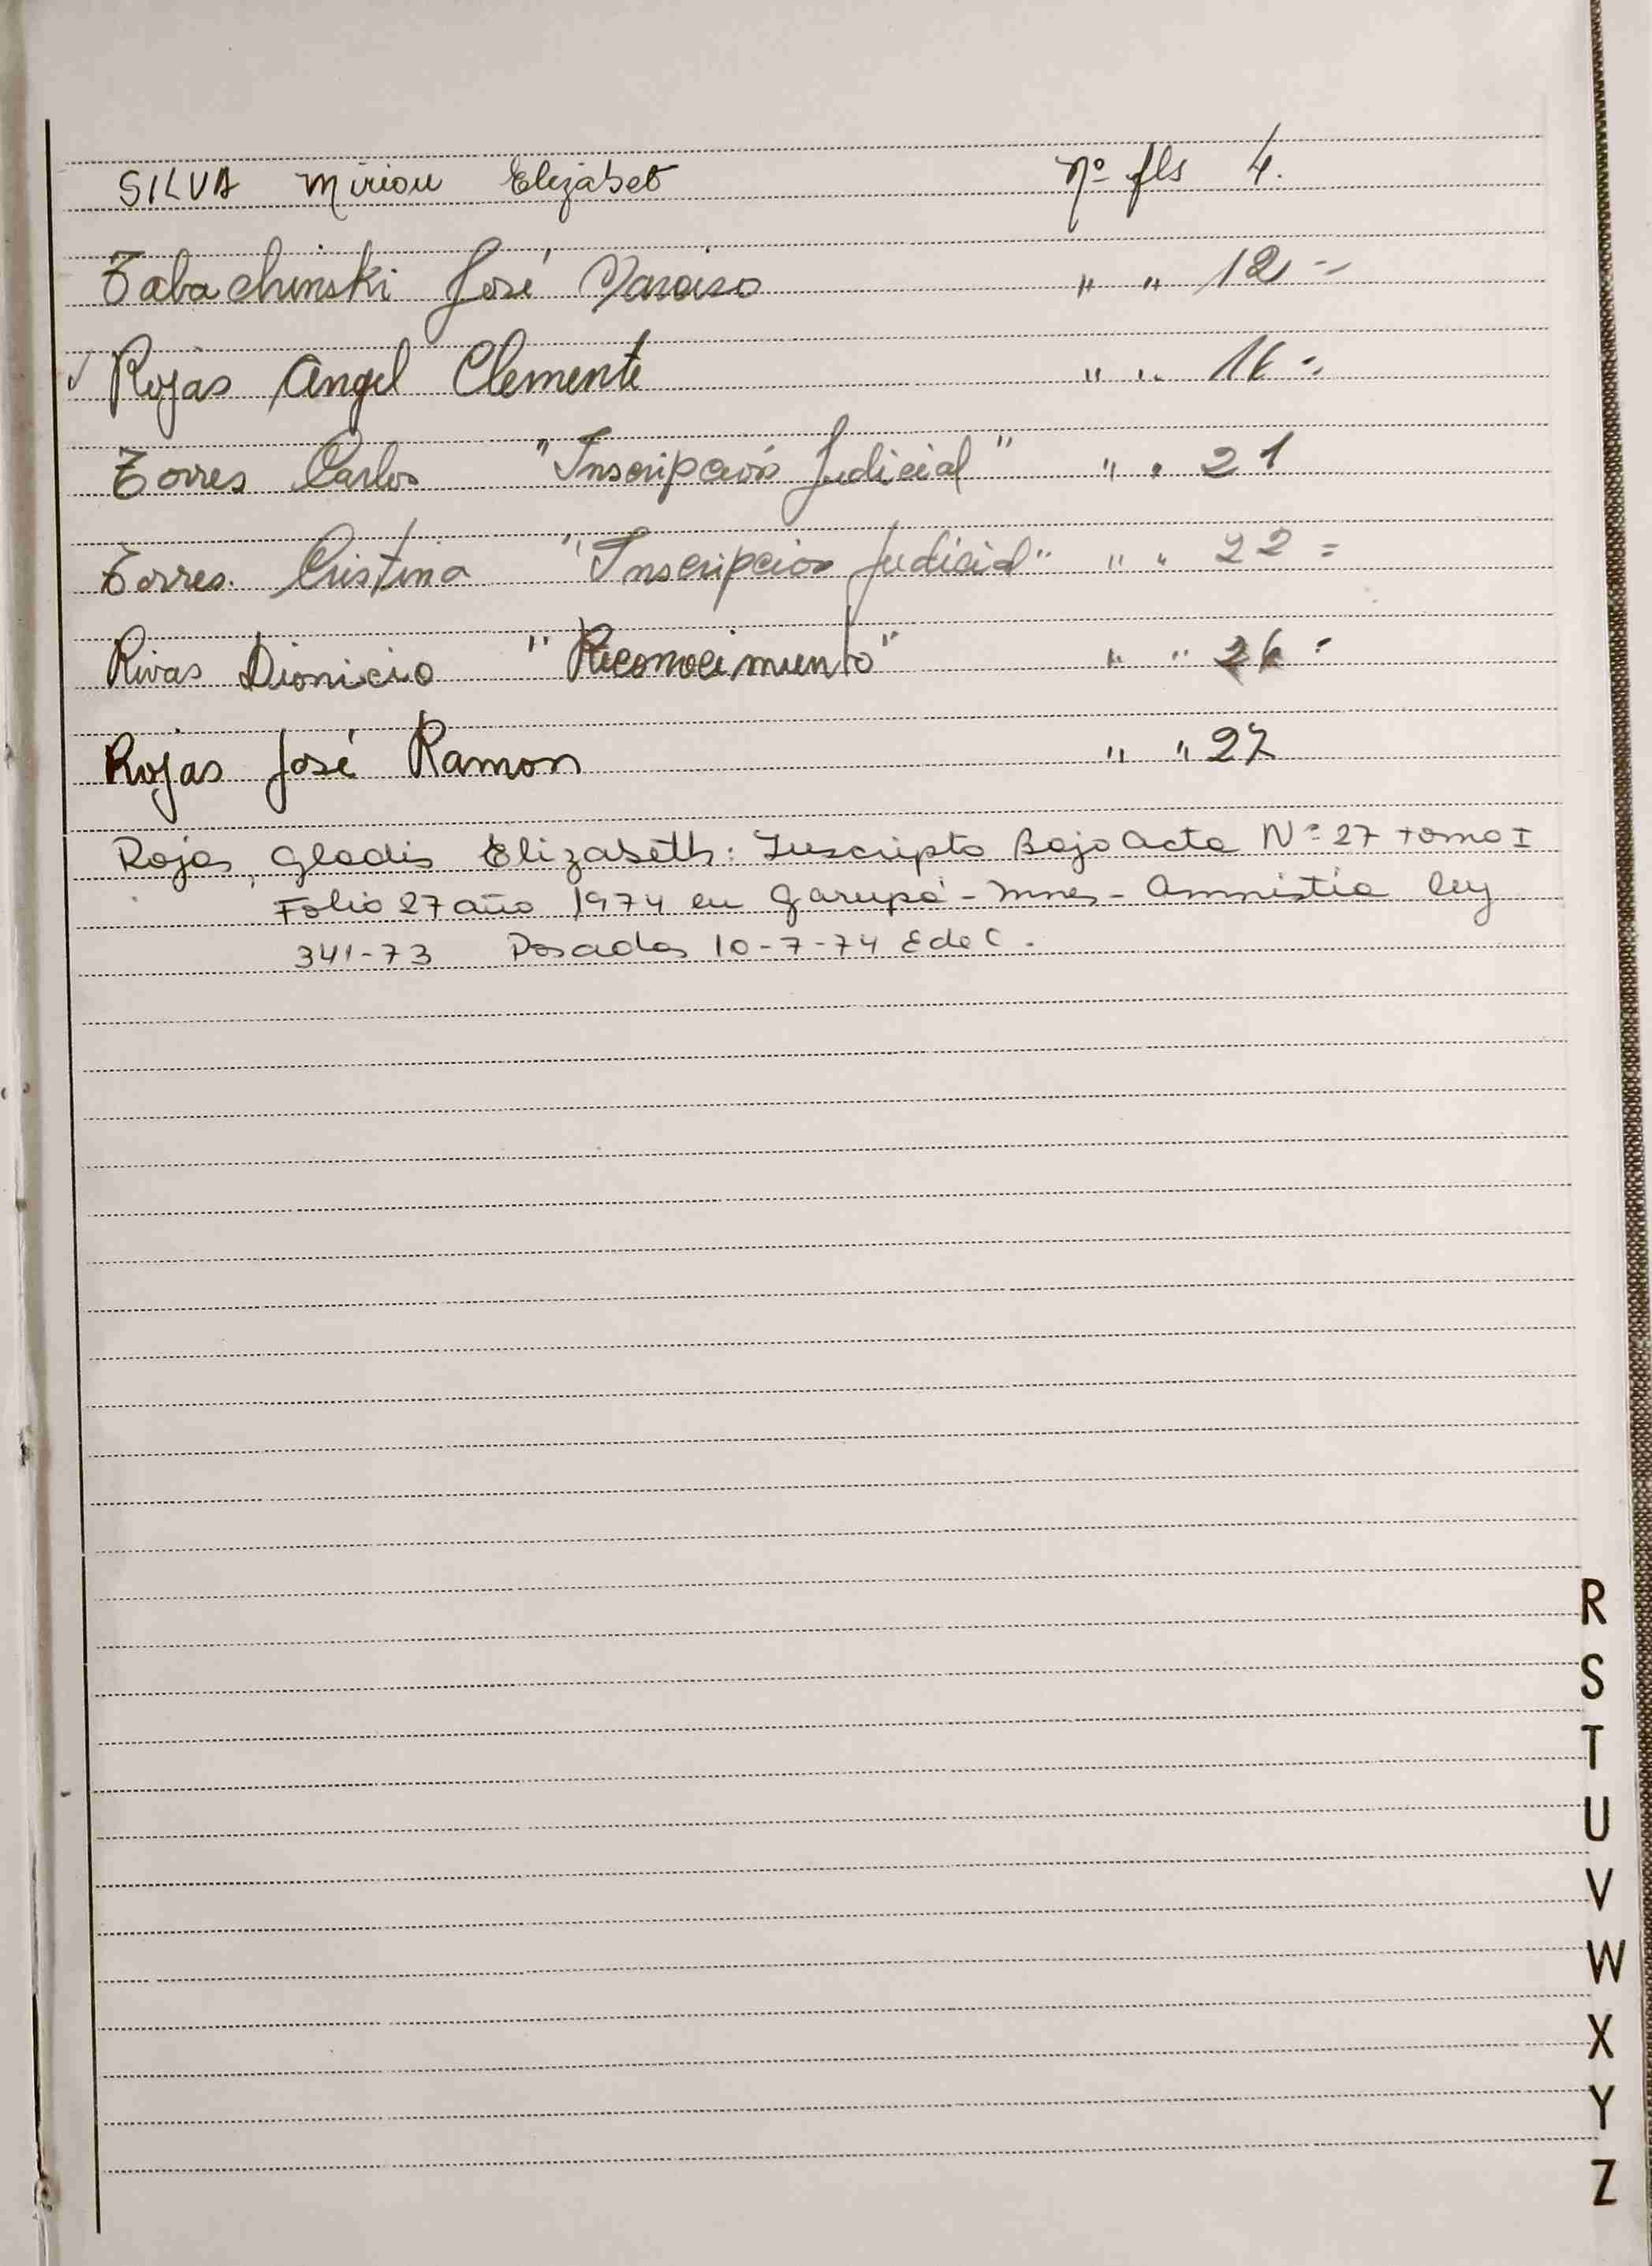 SILVA Miriam Elizabet nº fls 4.
Tabachinski José Narciso " " 12 =
✓ Rojas Angel Clemente " " 16 =
Torres Carlos "Inscripción Judicial" " " 21
Torres. Cristina "Inscripcion Judicial" " " 22 =
Rivas Dionicio "Reconocimiento" " " 26 =
Rojas José Ramon " " 27
Rojas, Gladis Elizabeth: Inscripta Bajo Acta Nº 27 tomo I
Folio 27 año 1974 en Garupá - Mnes - Amnistia ley
341-73 Posadas 10-7-74 E de C.
R
S
T
U
V
W
X
Y
Z